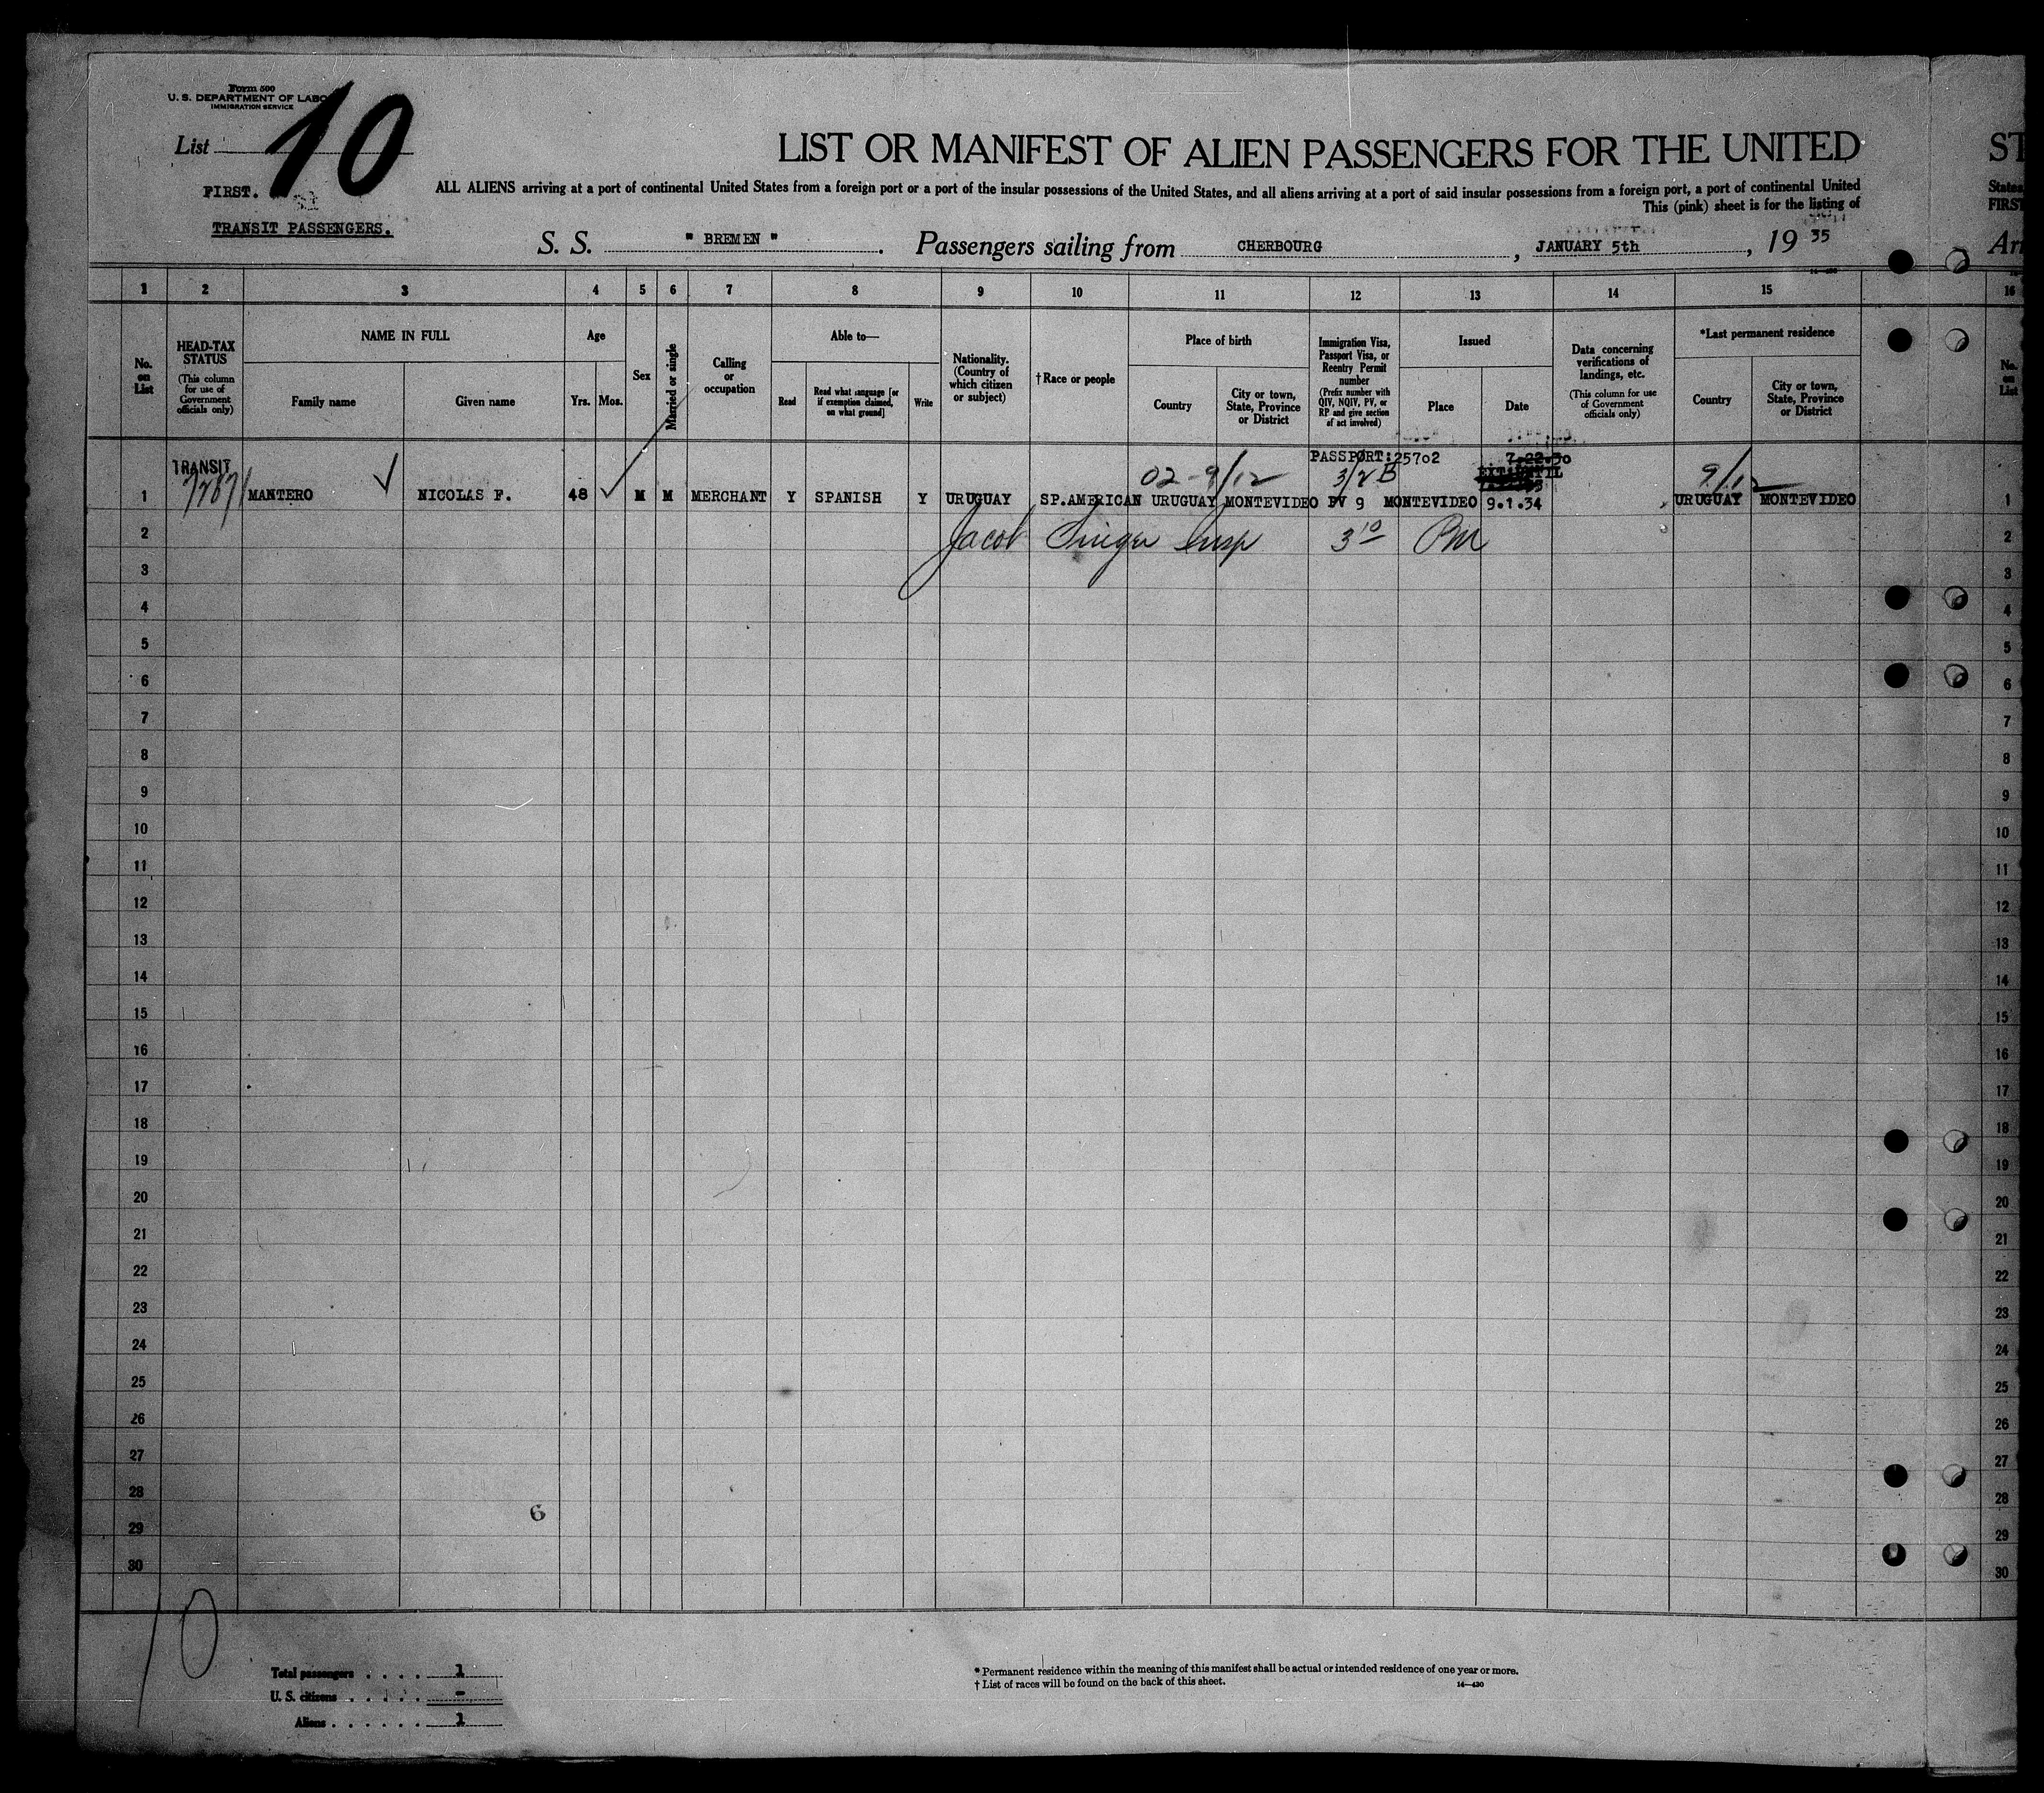 Form 500
U. S. DEPARTMENT OF LABOR
IMMIGRATION SERVICE
List 10
FIRST.
TRANSIT PASSENGERS.
LIST OR MANIFEST OF ALIEN PASSENGERS FOR THE UNITED
ST
ALL ALIENS arriving at a port of continental United States from a foreign port or a port of the insular possessions of the United States, and all aliens arriving at a port of said insular possessions from a foreign port, a port of continental United
States
This (pink) sheet is for the listing of
FIRST
S. S. " BREMEN ". Passengers sailing from CHERBOURG, JANUARY 5th, 19 35
Arr
1 2 3 4 5 6 7 8 9 10 11 12 13 14 15 16
No. on List
HEAD-TAX STATUS (This column for use of Government officials only)
NAME IN FULL
Family name
Given name
Age
Yrs. Mos.
Sex
Married or single
Calling or occupation
Able to—
Read
Read what language [or if exemption claimed, on what ground]
Write
Nationality. (Country of which citizen or subject)
†Race or people
Place of birth
Country
City or town, State, Province or District
Immigration Visa, Passport Visa, or Reentry Permit number (Prefix number with QIV, NQIV, PV, or RP and give section of act involved)
Issued
Place
Date
Data concerning verifications of landings, etc. (This column for use of Government officials only)
*Last permanent residence
Country
City or town, State, Province or District
No. on List
TRANSIT 02-9/12 PASSPORT:25702 7-22-30
3/2 B 9/12
1 MANTERO NICOLAS F. 48 M M MERCHANT Y SPANISH Y URUGUAY SP.AMERICAN URUGUAY MONTEVIDEO PV 9 MONTEVIDEO 9.1.34 URUGUAY MONTEVIDEO 1
2 Jacob Singer Insp 3 10 PM 2
3 3
4 4
5 5
6 6
7 7
8 8
9 9
10 10
11 11
12 12
13 13
14 14
15 15
16 16
17 17
18 18
19 19
20 20
21 21
22 22
23 23
24 24
25 25
26 26
27 27
28 28
6
29 29
30 30
10
Total passengers . . . . 1
U. S. citizens . . . . . -
Aliens . . . . . . 1
* Permanent residence within the meaning of this manifest shall be actual or intended residence of one year or more.
† List of races will be found on the back of this sheet.
14—430